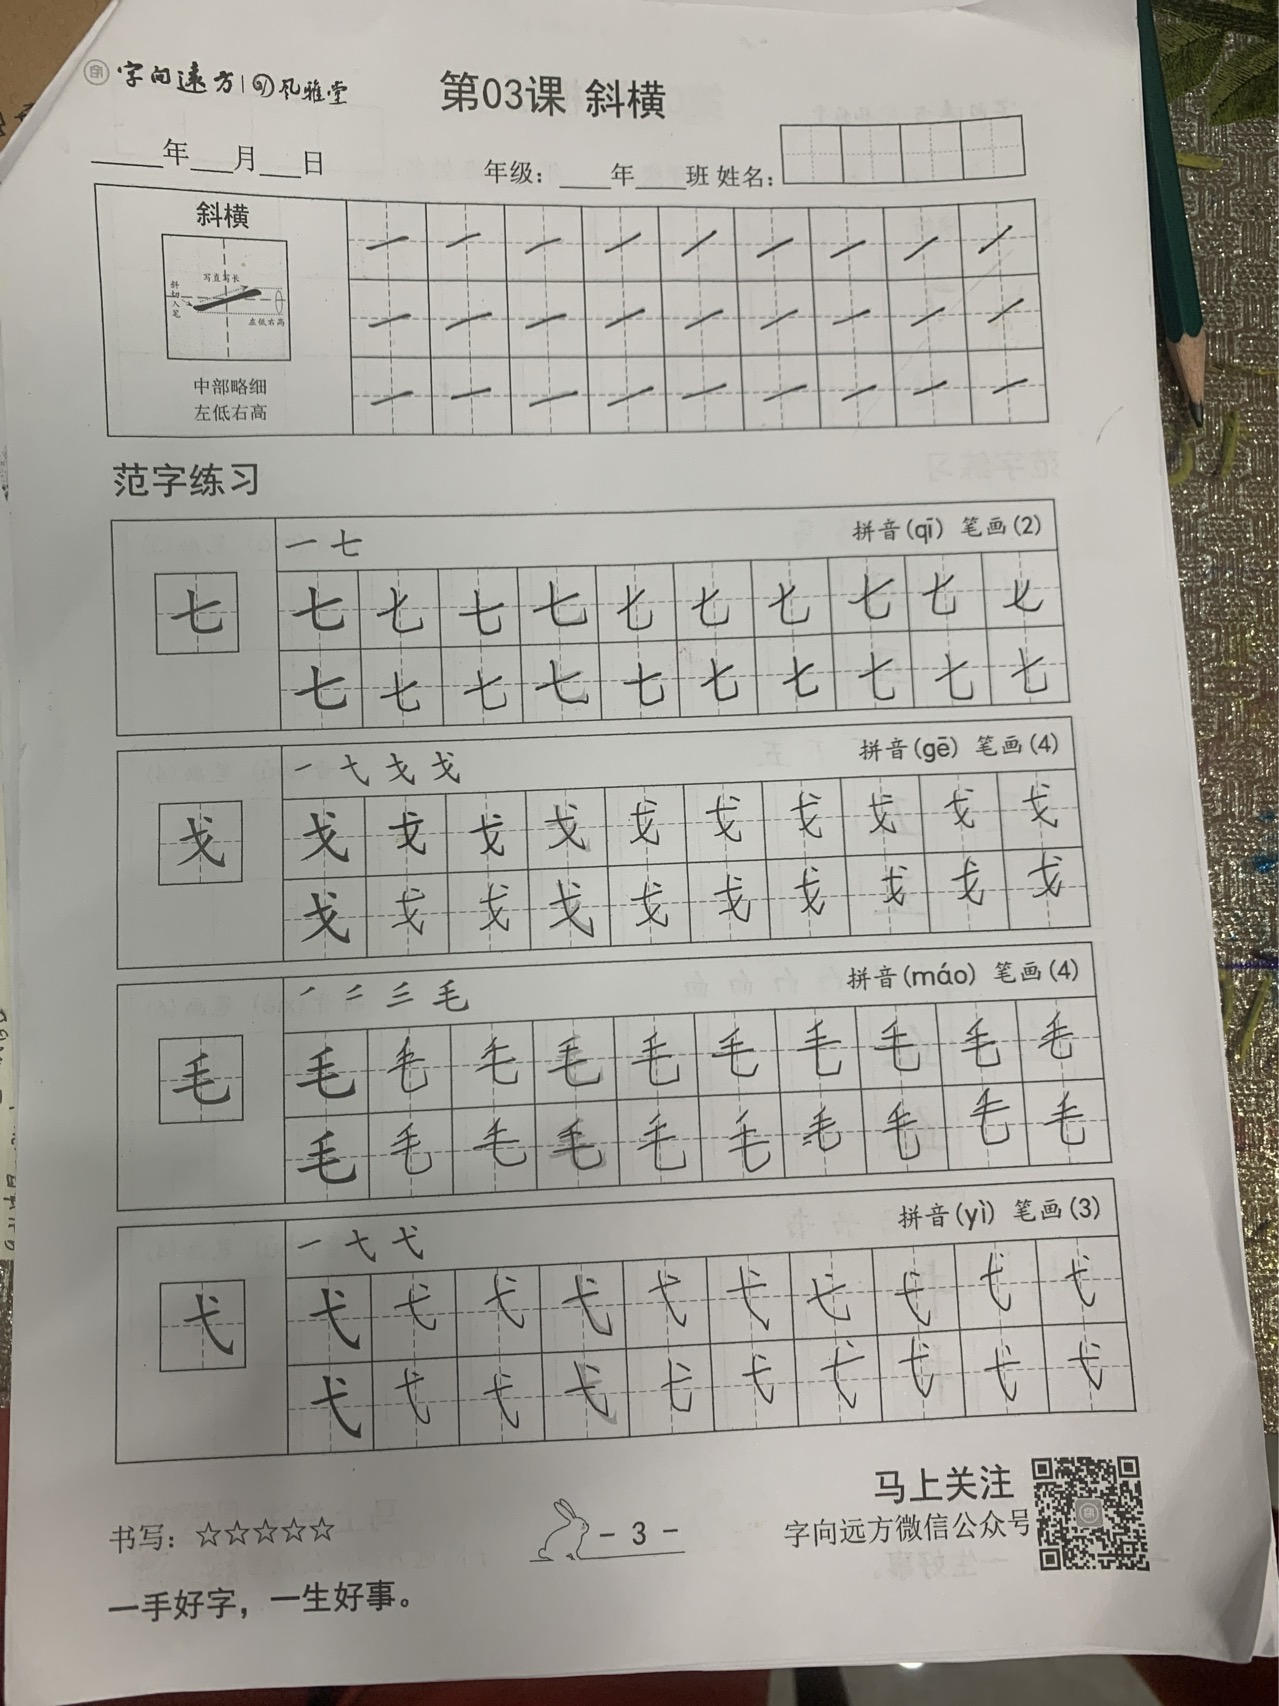 字向远方 | 风雅堂
第03课 斜横
____年___月___日
年级：____年____班 姓名：
斜横
写直写长
斜切入笔
左低右高
中部略细
左低右高
范字练习
一 七 拼音(qī) 笔画(2)
七
七 七 七 七 七 七 七 七 七 七
七 七 七 七 七 七 七 七 七 七
一 弋 戈 戈 拼音(gē) 笔画(4)
戈
戈 戈 戈 戈 戈 戈 戈 戈 戈 戈
戈 戈 戈 戈 戈 戈 戈 戈 戈 戈
拼音(máo) 笔画(4)
毛
毛 毛 毛 毛 毛 毛 毛 毛 毛 毛
毛 毛 毛 毛 毛 毛 毛 毛 毛 毛
一 弋 弋 拼音(yì) 笔画(3)
弋
弋 弋 弋 弋 弋 弋 弋 弋 弋 弋
弋 弋 弋 弋 弋 弋 弋 弋 弋 弋
书写：☆☆☆☆☆
- 3 -
马上关注
字向远方微信公众号
一手好字，一生好事。